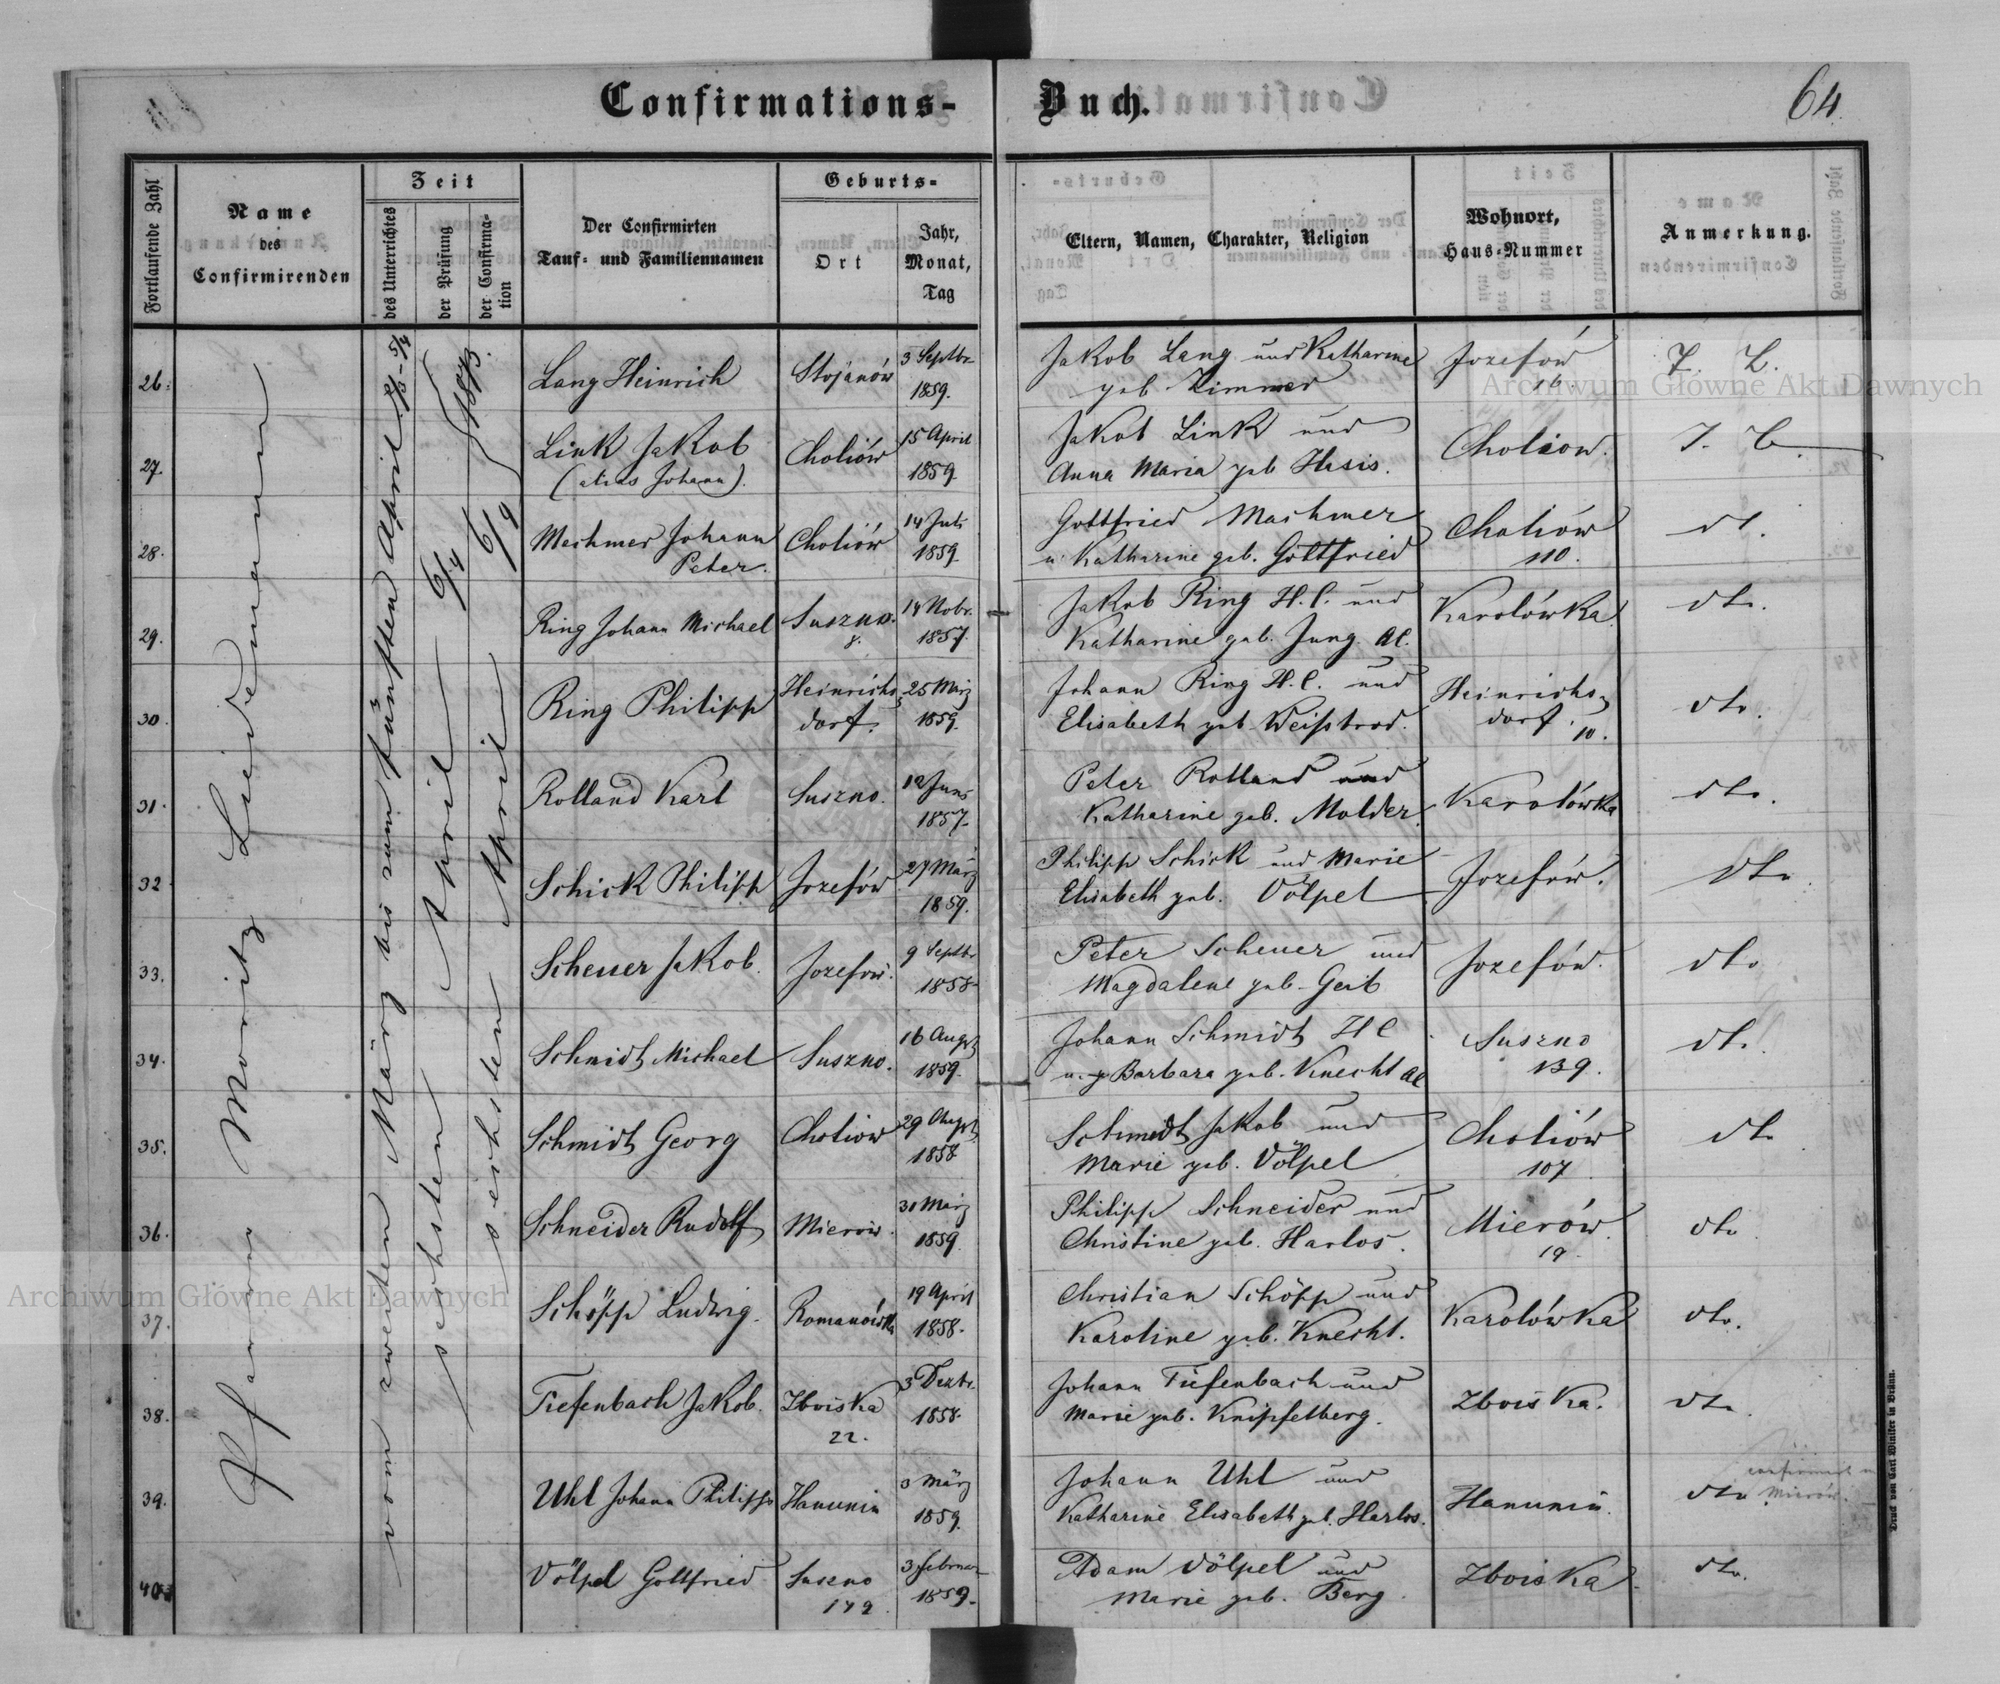 Confirmations-Buch.
64
Fortlaufende Zahl
Name
des
Confirmirenden
Zeit
des Unterrichtes
der Prüfung
der Confirma-
tion
Der Confirmirten
Tauf- und Familiennamen
Geburts-
Ort
Jahr,
Monat,
Tag
Eltern, Namen, Charakter, Religion
Wohnort,
Haus-Nummer
Anmerkung.
Pfarrer Moritz Leidemann
vom zweiten März bis zum fünften April
sechsten April 6/4
sechsten April 6/4
1873.
26.
Lang Heinrich
Stojanów
3 Septbr.
1859.
Jakob Lang und Katharine
geb Zimmer
Jozefów
16.
27.
Link Jakob
(alias Johann).
Choliów
15 April
1859.
Jakob Link und
Anna Maria geb Hasis.
Choliow.
28.
Machmer Johann
Peter.
Choliów
14 Juli
1859.
Gottfried Machmer
u Katharine geb. Gottfried
Choliów
110.
dt.
29.
Ring Johann Michael
Suszno.
8.
14 Nobr.
1857.
Jakob Ring H.C. und
Katharine geb. Jung. AC.
Karolówka
dto.
30.
Ring Philipp
Heinrichs
dorf.
25 März
1859.
Johann Ring H.C. und
Elisabeth geb Weißbrod.
Heinrichs
dorf.
10.
dto.
31.
Rolland Karl
Suszno.
12 Juni
1857.
Peter Rolland und
Katharine geb. Molder.
Karolówka
dto.
32
Schick Philipp
Jozefów
27 März
1859.
Philipp Schick und Marie
Elisabeth geb. Völpel
Jozefów.
dto
33.
Scheuer Jakob.
Jozefow.
9 Septbr
1858.
Peter Scheuer und
Magdalene geb. Geib
Jozefów.
dto
34.
Schmidt Michael
Suszno.
16 Augst
1859.
Johann Schmidt HC
u. Barbara geb. Knecht AC
Suszno
139.
dto.
35.
Schmidt Georg
Choliow
29 Augst
1858
Schmidt Jakob und
Marie geb. Völpel
Choliów
107
dto
36.
Schneider Rudolf
Mierów.
30 März
1859.
Philipp Schneider und
Christine geb. Harlos.
Mierów.
19.
dto
37.
Schöpp Ludwig.
Romanówka
19 April
1858.
Christian Schöpp und
Karoline geb. Knecht.
Karolówka
dto.
38.
Tiefenbach Jakob.
Zboiska
22.
3 Dezbr.
1858.
Johann Tiefenbach und
Marie geb. Knipfelberg.
Zboiska.
dto.
39.
Uhl Johann Philipp
Hanunin
3 März
1859.
Johann Uhl und
Katharine Elisabeth geb. Harlos.
Hanunin.
dto
confirmirt in
Mierów.
40.
Völpel Gottfried
Suszno
179.
3 Februar
1859.
Adam Völpel und
Marie geb. Berg.
Zboiska.
dto.
Druck von Carl Winiker in Brünn.
Archiwum Główne Akt Dawnych
Archiwum Główne Akt Dawnych